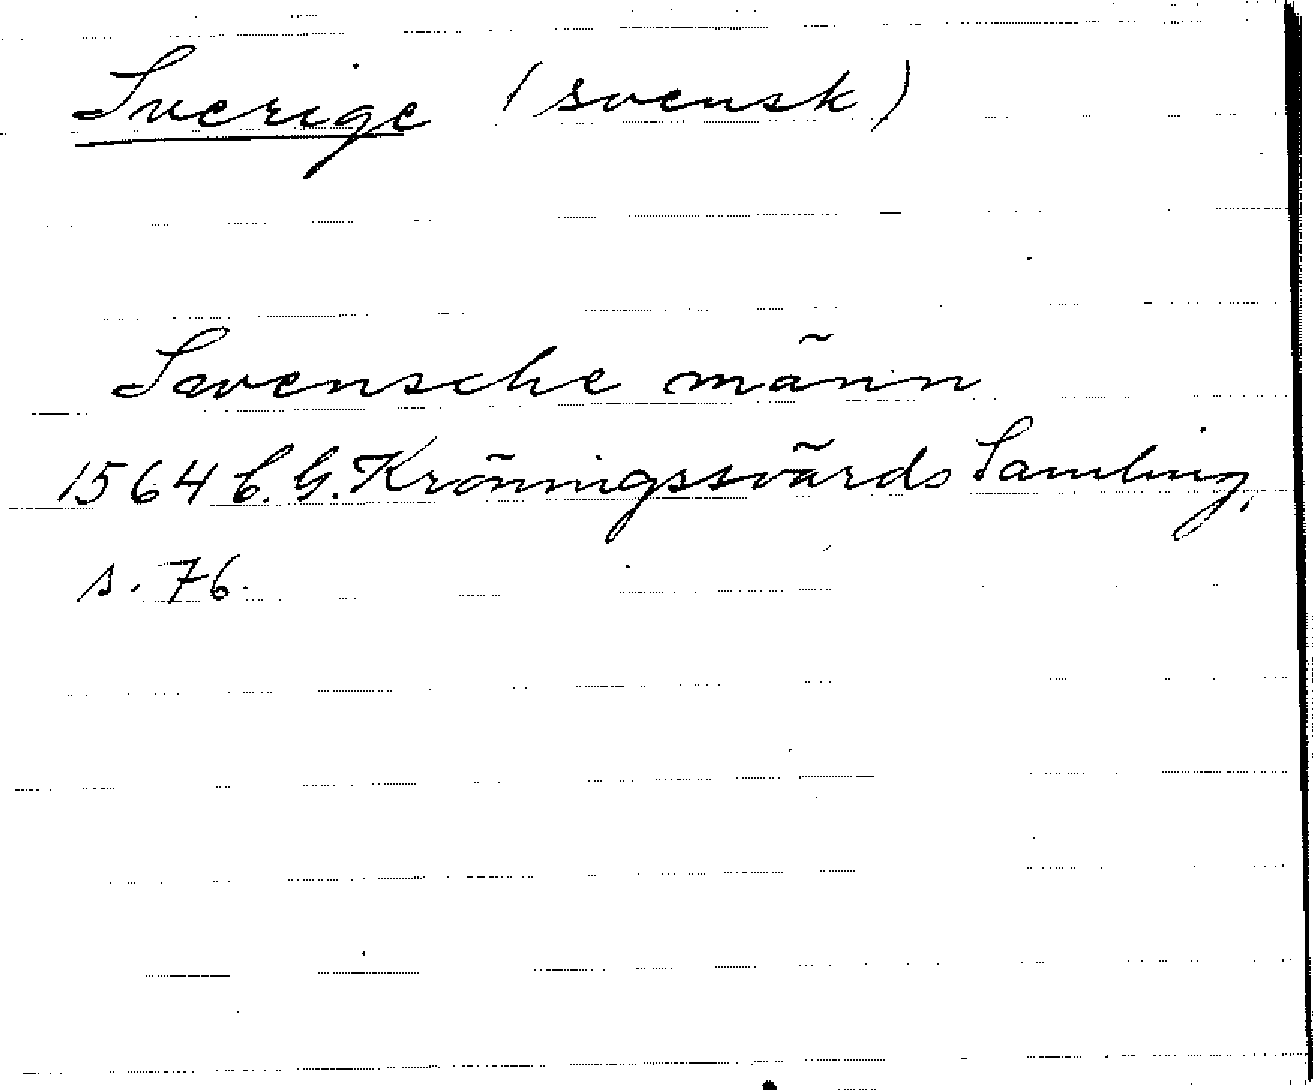 Sverige (svensk)
Svensche männ
1564 C. G. Kröningssvärds Samling,
s. 76.